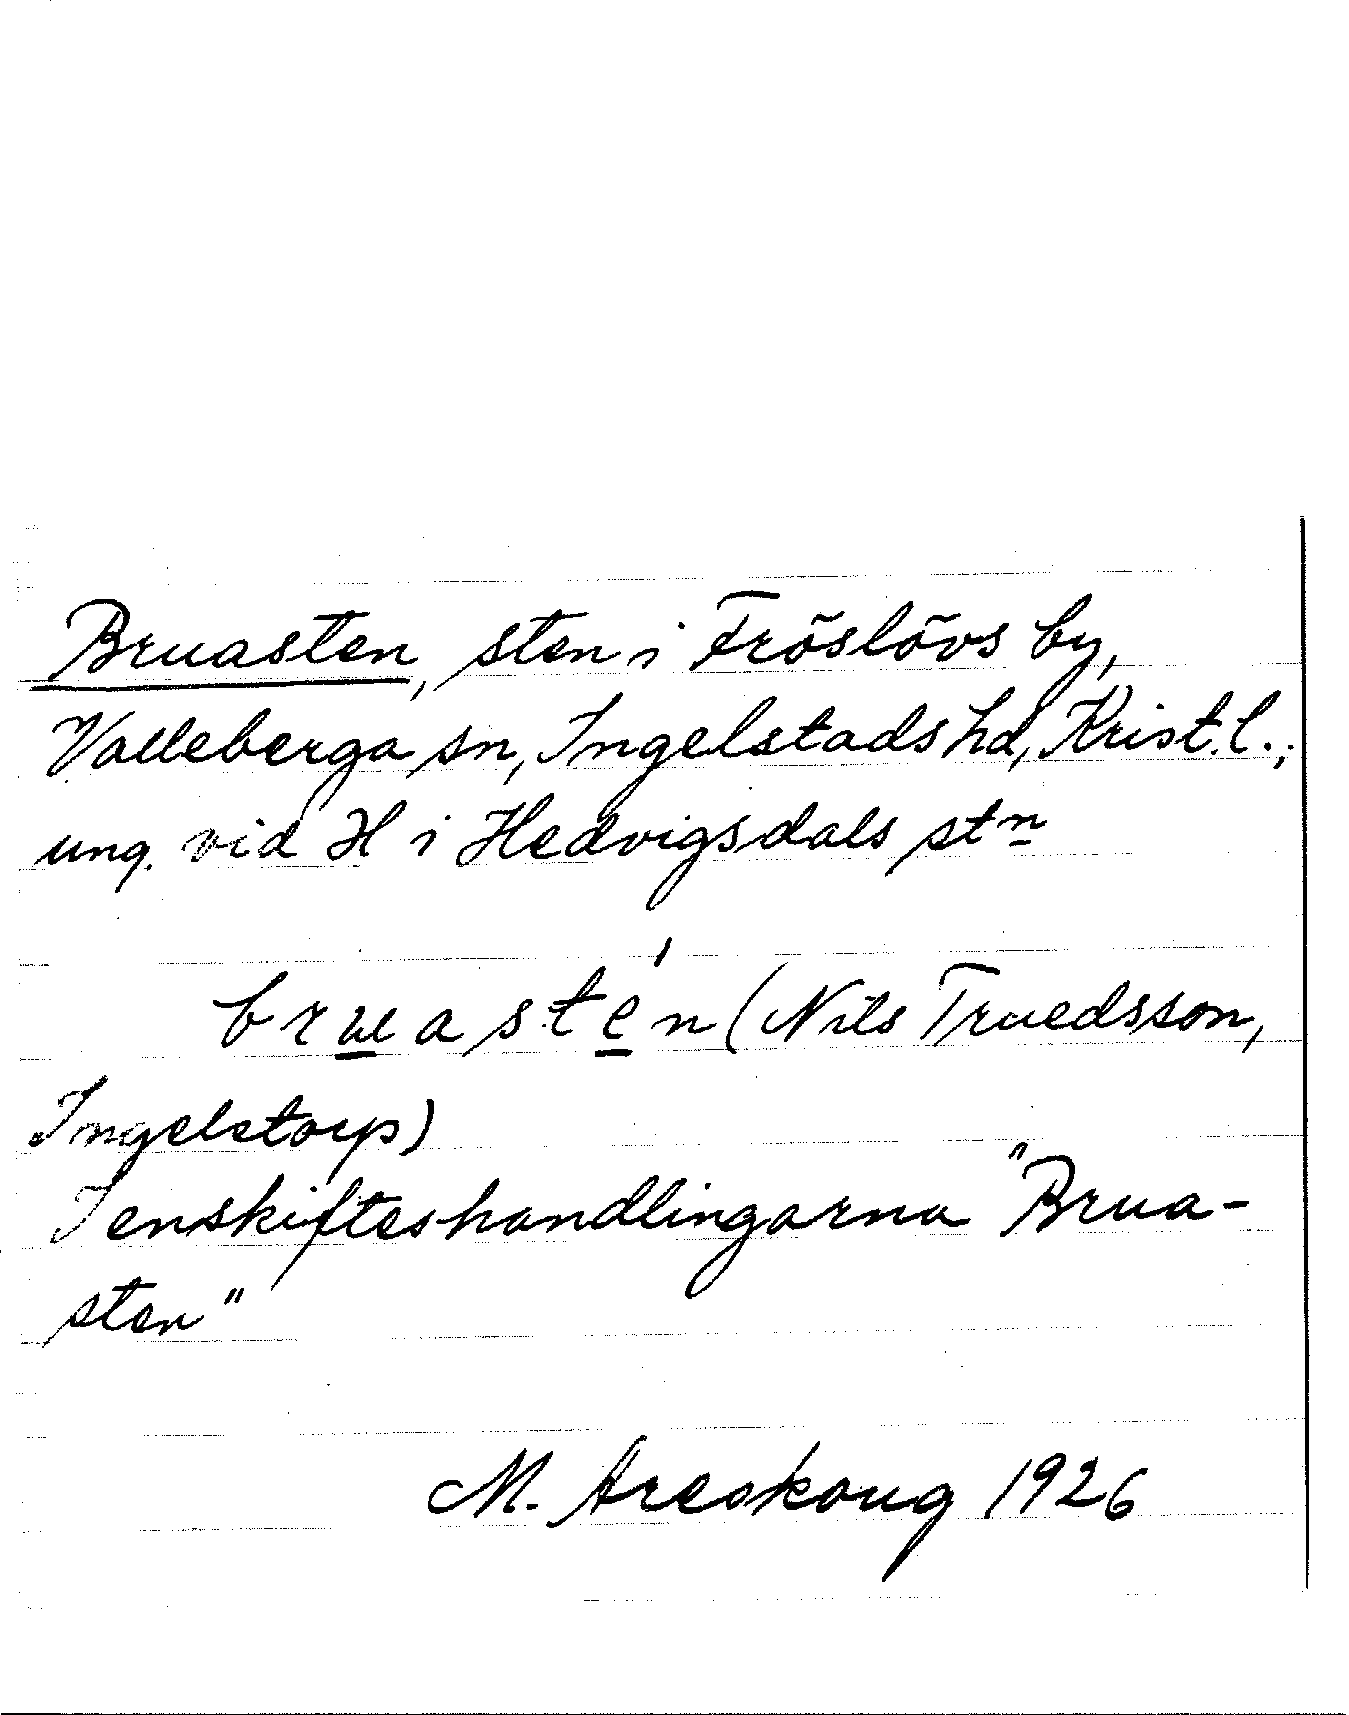 Bruasten, sten i Fröslövs by,
Valleberga sn, Ingelstads hd, Krist. l.,
ung. vid H i Hedvigsdals stn
bruaste'n (Nils Truedsson,
Ingelstorp)
I enskifteshandlingarna "Brua-
sten"
M. Areskoug 1926